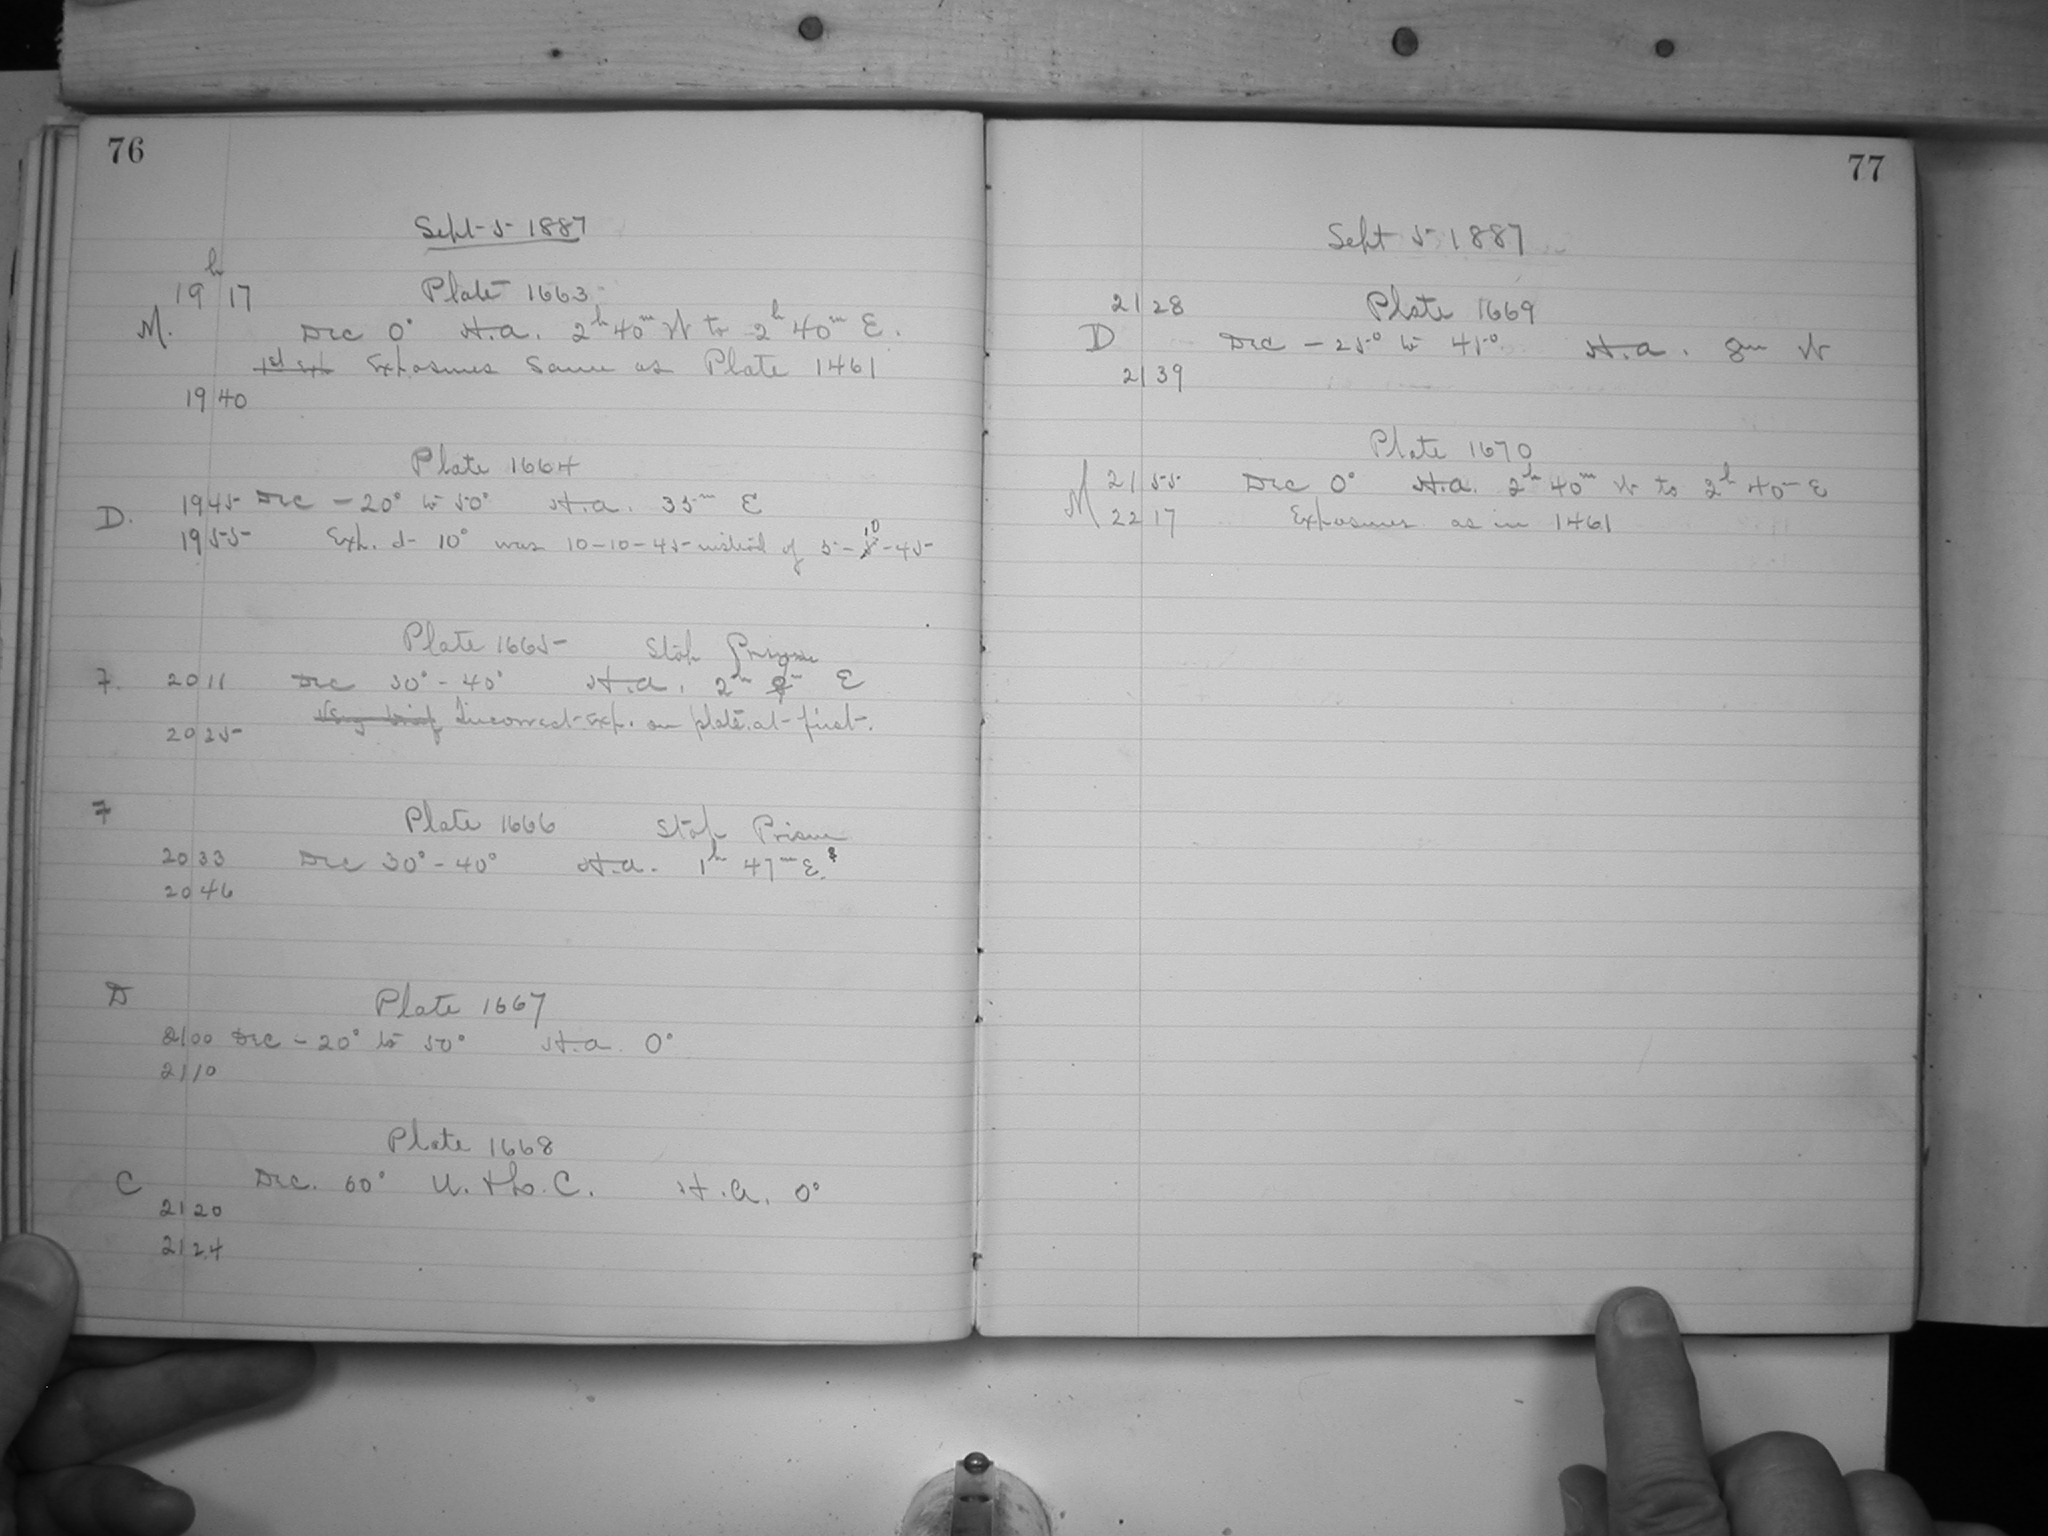 76
Sept 5 1887
19 h 17 Plate 1663
M. Dec 0° H.a. 2h 40m W to 2h 40m E.
1st Exp Exposures Same as Plate 1461
19 40
Plate 1664
D. 19 45 Dec -20° to 50° H.a. 35m E
19 55 Exp. d- 10° was 10-10-45 instead of 5-10-45
Plate 1665 Stop Prism
7. 20 11 Dec 30° - 40° H.a. 2h m E
Very brief Incorrect Exp. on plate at first.
20 25
7 Plate 1666 Stop Prism
20 33 Dec 30° - 40° H.a. 1h 47m E.
20 46
D Plate 1667
21 00 Dec -20° to 50° H.a. 0°
21 10
Plate 1668
C Dec. 60° U. C. H.a. 0°
21 20
21 24
77
Sept 5 1887
21 28 Plate 1669
D Dec -25° to 45° H.a. 8m W
21 39
Plate 1670
M 21 55 Dec 0° H.a. 2h 40m W to 2h 40m E
22 17 Exposures as in 1461